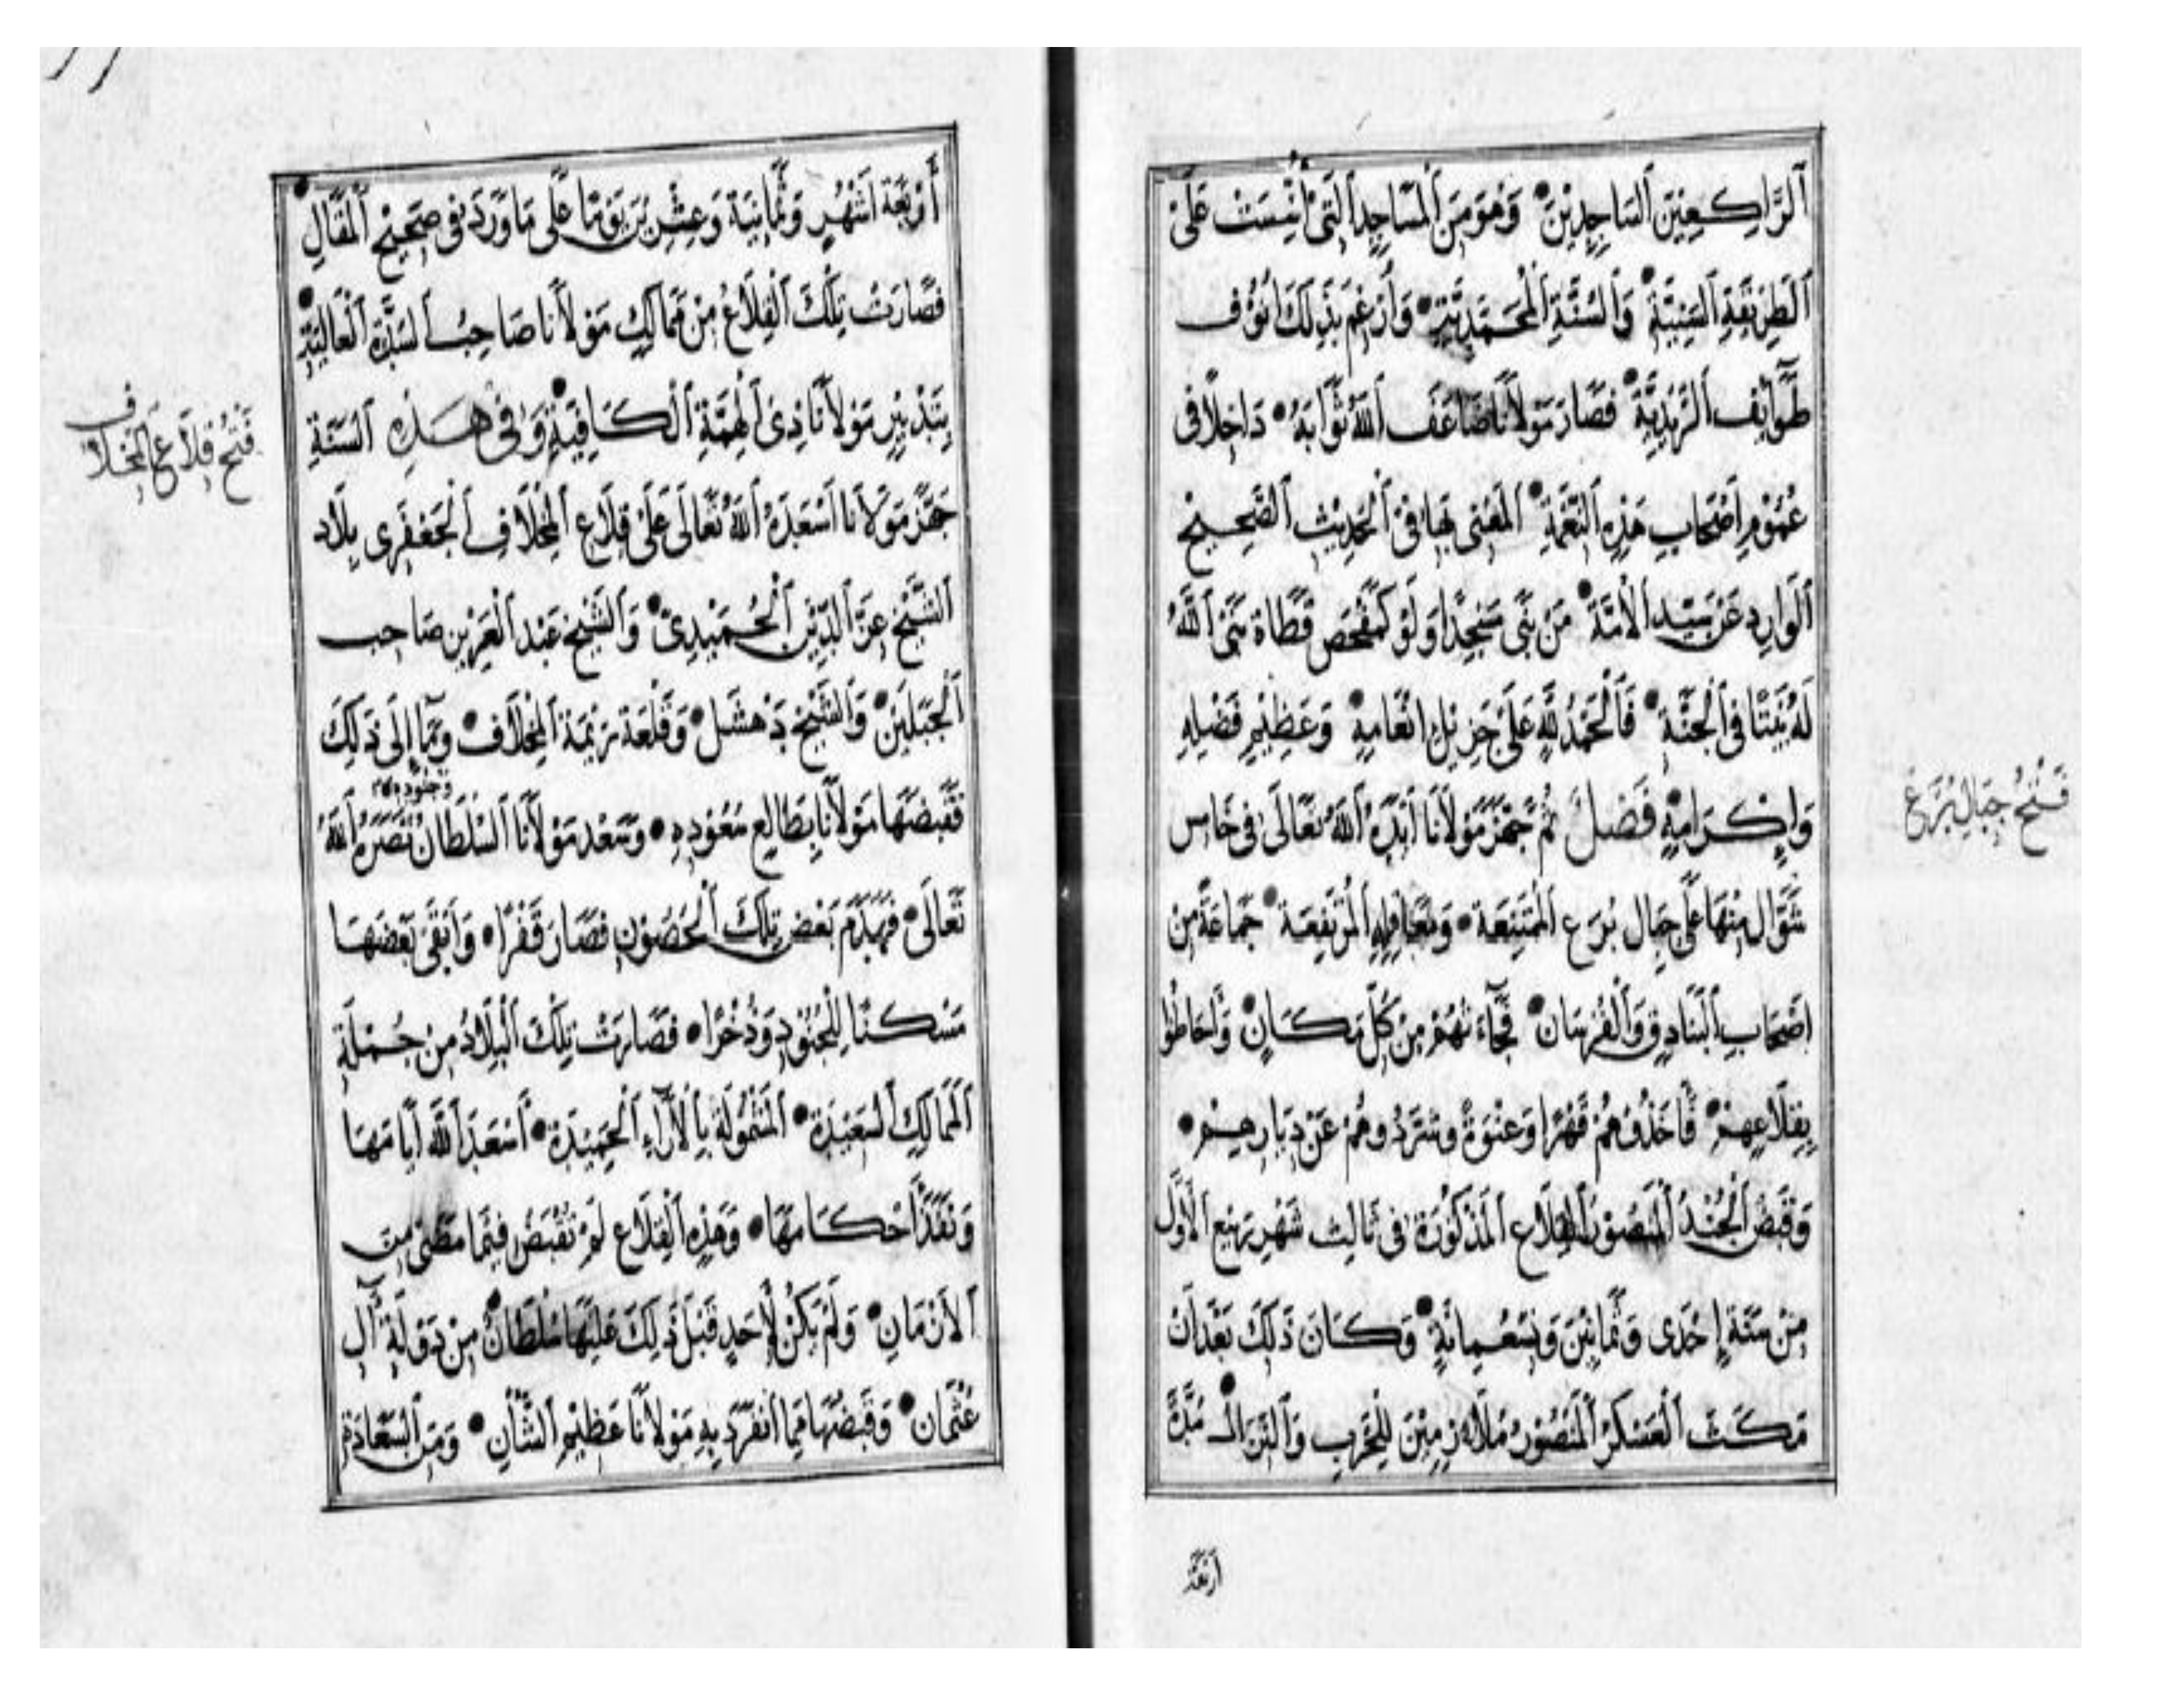 اَلرَّاكِعِيْنَ اَلسَاجِدِيْنَ وَهُوَ مِنَ اَلْمَسَاجِدِ اَلتِى اُسِّسَتْ عَلَى
اَلطَرِيْقَةِ اَلسَنِيَّةِ وَاَلسُنَّةِ اَلْمُحَمَّدِيَّةِ وَاَرْغَمَ بِذَلِكَ اُنُوْف
طَوَآئِف اَلزَيْدِيَّةِ فَصَارَ مَوْلاَنَا ضَاعَفَ اَللّهُ ثَوَابَهُ دَاخِلاً فى
عُمُوْمِ اَصْحَابِ هَذِهِ اَلنِعْمَةِ اَلْمَعْنِى بِهَا فِىْ اَلْحَدِيْثِ اَلصَحِيْحِ
اَلْوَارِدِ عَنْ سَيِّدِ اَلاُمَّةْ مَنْ بَنَى مَسْجِدًا وَلَوْ كَمَفْحَصِ قَطَاة بَنَى اَللّهُ
لَهُ بَيْتًا فى اَلْجَنَّةِ فَاَلْحَمْدُ لِلّهِ عَلَى جَزِيْلِ اِنْعَامِهِ وَعَظِيْمِ فَضْلِهِ
وَاِكْرَامِهِ فَصْلٌ ثُمَّ جَهَّزَ مَوْلاَنَا اَيَّدَهُ اَللّهُ تَعَالَى فى خَامِس
شَوَّال مِنْهَا عَلَى جِبَال بُرَع اَلْمُتَمَنِّعَة وَمَعَاقِلِهِ اَلْمُرْتَفِعَة جَمَاعَةً مِنْ
اَصْحَابِ اَلْبَنَادِقِ وَاَلْفُرْسَان فَجَآءَتْهُمْ مِنْ كُلِّ مَكَانٍ وَاَحَاطُوْا
بِقِلاَعِهِمْ فَاَخَذُوْهُمْ قَهْرًا وَعَنْوَةً وَشَرَّدُوهُمْ عَنْ دِيَارِهِمْ
وَقَبَضَ اَلْجُنْدُ اَلْمَنْصُوْرُ اَلْقِلاَعِ اَلْمَذْكُوْرَة فى ثَالِث شَهْرِ رَبِيْعِ اَلأَوَّل
مِنْ سَنَةِ اِحْدَى وَثَمَانِيْنَ وَتِسْعِمِائَةٍ وَكَانَ ذَلِكَ بَعْدَ اَنْ
مَكَثَ اَلْعَسْكَرُ اَلْمَنْصُوْرُ مُلاَزِمِيْنَ لِلْحَرْبِ وَاَلنِزَالِ مُدَّةَ
اَرْبَعَة
فَتْحُ جِبَالِ بُرَعْ
أَرْبَعَة اَشْهُرٍ وَثَمَانِيَة وَعِشْرِيْنَ يَوْمًا عَلَى مَا وَرَدَ فى صَحِيْحِ اَلْمَقَالِ
فَصَارَتْ تِلْكَ اَلْقِلاَعُ مِنْ مَمَالِكِ مَوْلاَنَا صَاحِبُ اَلسُدَّةِ اَلْعَالِيَةِ
بِتَدْبِيْرِ مَوْلاَنَا ذِىْ اَلْهِمَّةِ اَلْكَافِيَةِ وَفِىْ هَذِهِ اَلسَنَةِ
جَهَّزَ مَوْلاَنَا اَسْعَدَهُ اَللّهُ تَعَالَى عَلَى قِلاَعِ اَلْمِخْلاَفِ اَلْجَعْفَرِى بِلاَد
اَلشَّيْخِ عِزِّ اَلدِّيْنِ اَلْحُمَيْدِىْ وَاَلشَيْخِ عَبْد اَلْعَزِيْزِ صَاحِب
اَلْجَبَلَيْنِ وَاَلشَيْخ دَهْشَل وَقَلْعَة رَيْمَة اَلْمِخْلاَف وَمَا اِلَى ذَلِكَ
فَقَبَضَهَا مَوْلاَنَا بِطَالِع سُعُوْدِهِ وَسَعْد مَوْلاَنَا اَلسُلْطَانْ نَصَرَهُ اَللّهُ
وَجُنُوْدِهِ
تَعَالَى فَهَدَمَ بَعْض تِلْكَ اَلْحُصُوْنِ فَصَارَ قَفْرًا وَاَبْقَى بَعْضَهَا
مَسْكَنًا لِلْجُنُوْدِ وَذُخْرًا فَصَارَتْ تِلْكَ اَلْبِلاَدُ مِنْ جُمْلَةِ
اَلْمَمَالِكِ اَلسَعِيْدَةِ اَلْمَشْمُوْلَة بِاَلأَرَآءِ اَلْحَمِيْدَةِ اَسْعَدَ اَللّهُ اَيَّامَهَا
وَنَفَّذَ اَحْكَامَهَا وَهَذِهِ اَلْقِلاَع لَمْ تُقْبَضْ فِيْمَا مَضَى مِنَ
اَلاَزْمَانِ وَلَمْ يَكُنْ لِأَحَدٍ قَبْلَ ذَلِكَ عَلَيْهَا سُلْطَانٌ مِنْ دَوْلَةِ آلِ
عُثْمَان وَقَبْضُهَا مِمَّا اَنْفَرَدَ بِهِ مَوْلاَنَا عَظِيْمِ اَلشَّأْنِ وَمِنَ اَلسَعَادَةِ
فَتْحُ قِلاَعِ اَلْمِخْلاَف